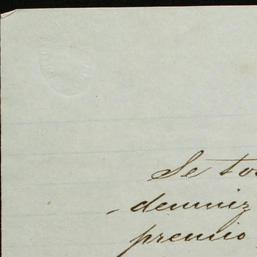 Se to
-demniz
premio